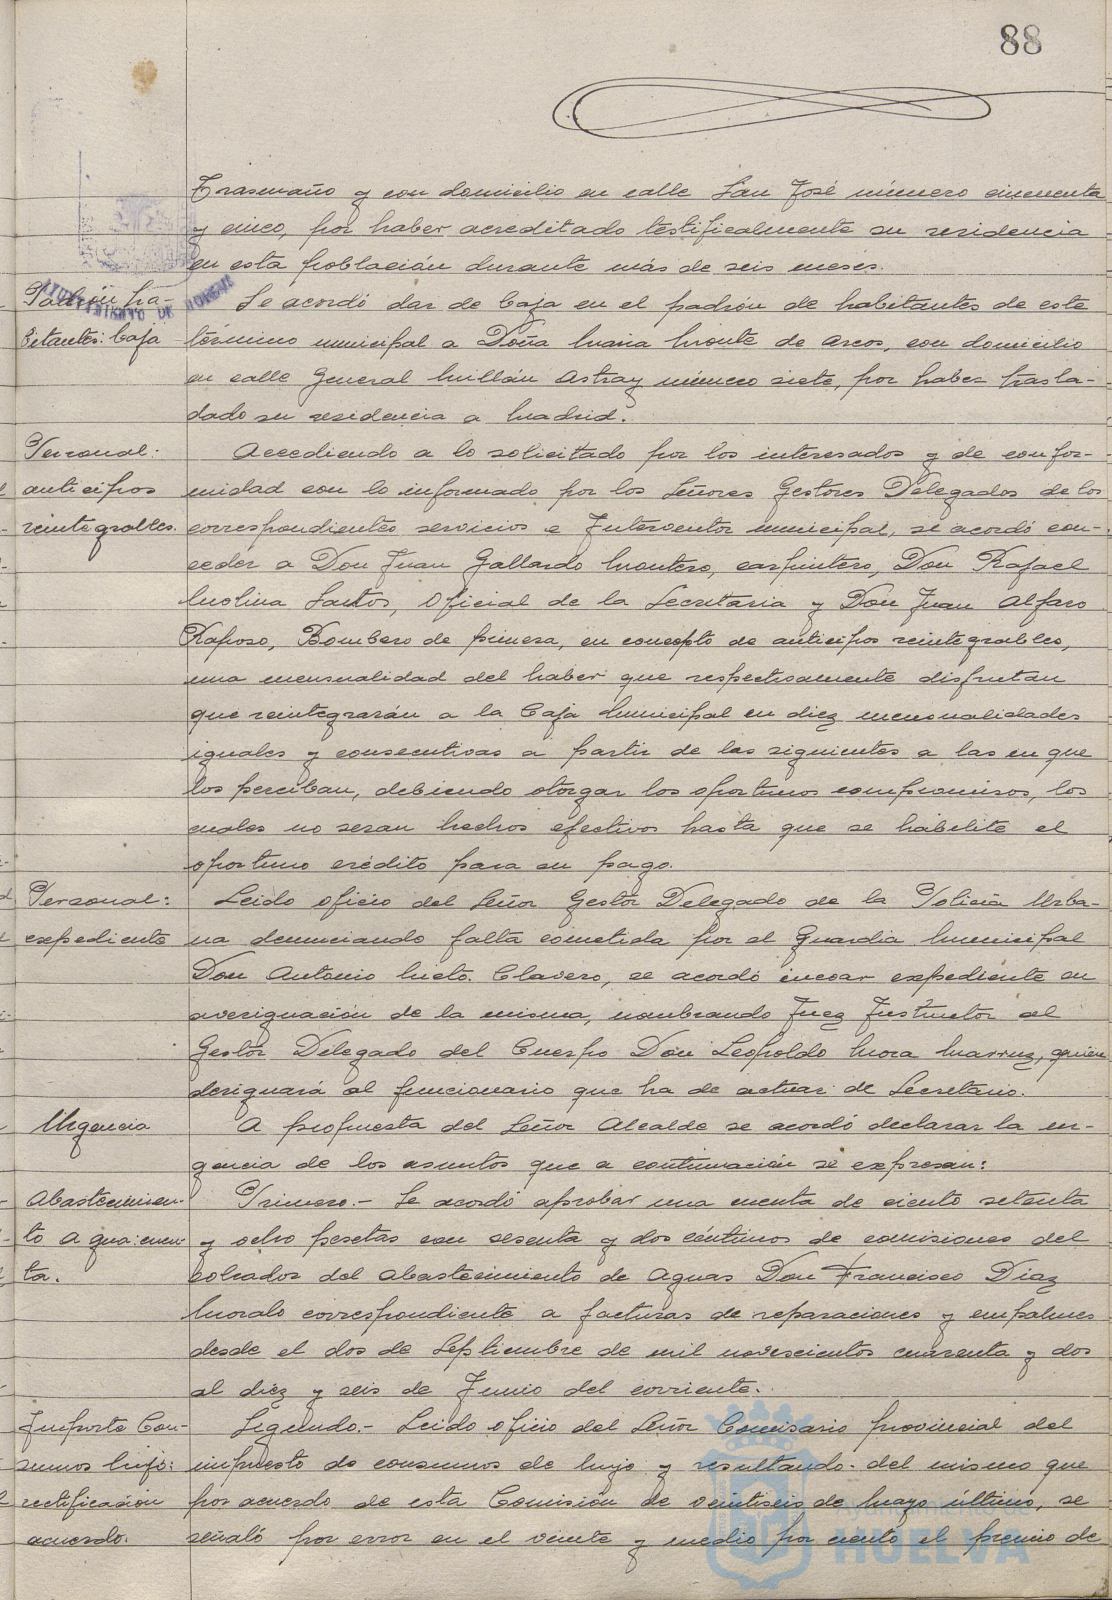 88
Trasmaño y con domicilio en calle San José número cincuenta
y cinco, por haber acreditado testificalmente su residencia
en esta población durante más de seis meses.
Padrón ha-
bitantes: baja
AYUNTAMIENTO DE HUELVA
Se acordó dar de baja en el padrón de habitantes de este
término municipal a Doña Maria Monte de Arcos, con domicilio
en calle General Millán Astray número siete, por haber trasla-
dado su residencia a Madrid.
Personal:
anticipos
reintegrables.
Accediendo a lo solicitado por los interesados y de confor-
midad con lo informado por los Señores Gestores Delegados de los
correspondientes servicios e Interventor municipal, se acordó con-
ceder a Don Juan Gallardo Montero, carpintero, Don Rafael
Molina Santos, Oficial de la Secretaria y Don Juan Alfaro
Raposo, Bombero de primera, en concepto de anticipos reintegrables,
una mensualidad del haber que respectivamente disfrutan
que reintegrarán a la Caja Municipal en diez mensualidades
iguales y consecutivas a partir de las siguientes a las en que
los perciban, debiendo otorgar los oportunos compromisos, los
cuales no seran hechos efectivos hasta que se habilite el
oportuno crédito para su pago.
Personal:
expediente
Leido oficio del Señor Gestor Delegado de la Policia Urba-
na denunciando falta cometida por el Guardia Municipal
Don Antonio Nieto Clavero, se acordó incoar expediente en
averiguación de la misma, nombrando Juez Instructor al
Gestor Delegado del Cuerpo Don Leopoldo Mora Marruz, quien
designará al funcionario que ha de actuar de Secretario.
Urgencia
A propuesta del Señor Alcalde se acordó declarar la ur-
gencia de los asuntos que a continuación se expresan:
Abastecimien-
to Agua: cuen-
ta.
Primero.- Se acordó aprobar una cuenta de ciento setenta
y ocho pesetas con sesenta y dos céntimos de comisiones del
cobrador del Abastecimiento de Aguas Don Francisco Diaz
Moralo correspondiente a facturas de reparaciones y empalmes
desde el dos de Septiembre de mil novescientos cuarenta y dos
al diez y seis de Junio del corriente.
Importe Con-
sumos lujo:
rectificación
acuerdo.
Segundo.- Leido oficio del Señor Comisario provincial del
impuesto de consumos de lujo y resultando del mismo que
por acuerdo de esta Comisión de veintiseis de Mayo último, se
señaló por error en el veinte y medio por ciento el premio de
Ayuntamiento de
HUELVA